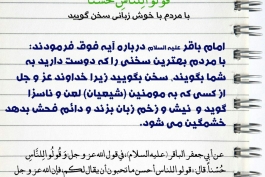 قُولُوا لِلنَّاسِ حُسْناً
با مردم با خوش زبانی سخن گویید
امام باقر علیه السلام درباره آیه فوق فرمودند:
با مردم بهترین سخنی را که دوست دارید به
شما بگویند، سخن بگویید زیرا خداوند عز و جل
از کسی که به مومنین (شیعیان) لعن و ناسزا
گوید و نیش و زخم زبان بزند و دائم فحش بدهد
خشمگین می شود.
عن أبي جعفر الباقر (علیه السلام)، في قول الله عز و جل وَ قُولُوا لِلنَّاسِ
حُسْناً قال: قولوا للناس أحسن ما تحبون أن يقال لكم، فإن الله عز و جل